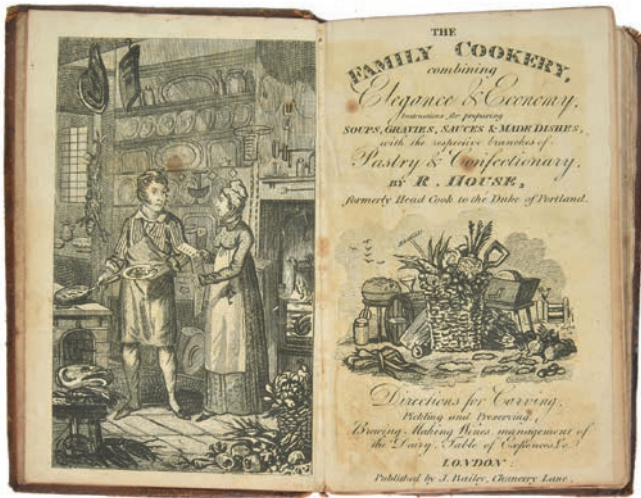 THE
FAMILY COOKERY,
combining
Elegance & Economy,
Instructions for preparing
SOUPS, GRAVIES, SAUCES & MADE DISHES,
with the respective branches of
Pastry & Confectionary,
BY R. HOUSE,
formerly Head Cook to the Duke of Portland.
Directions for Carving,
Pickling and Preserving,
Brewing Making Wines, management of
the Dairy, Table of Expences &c.
LONDON:
Published by J. Bailey, Chancery Lane.